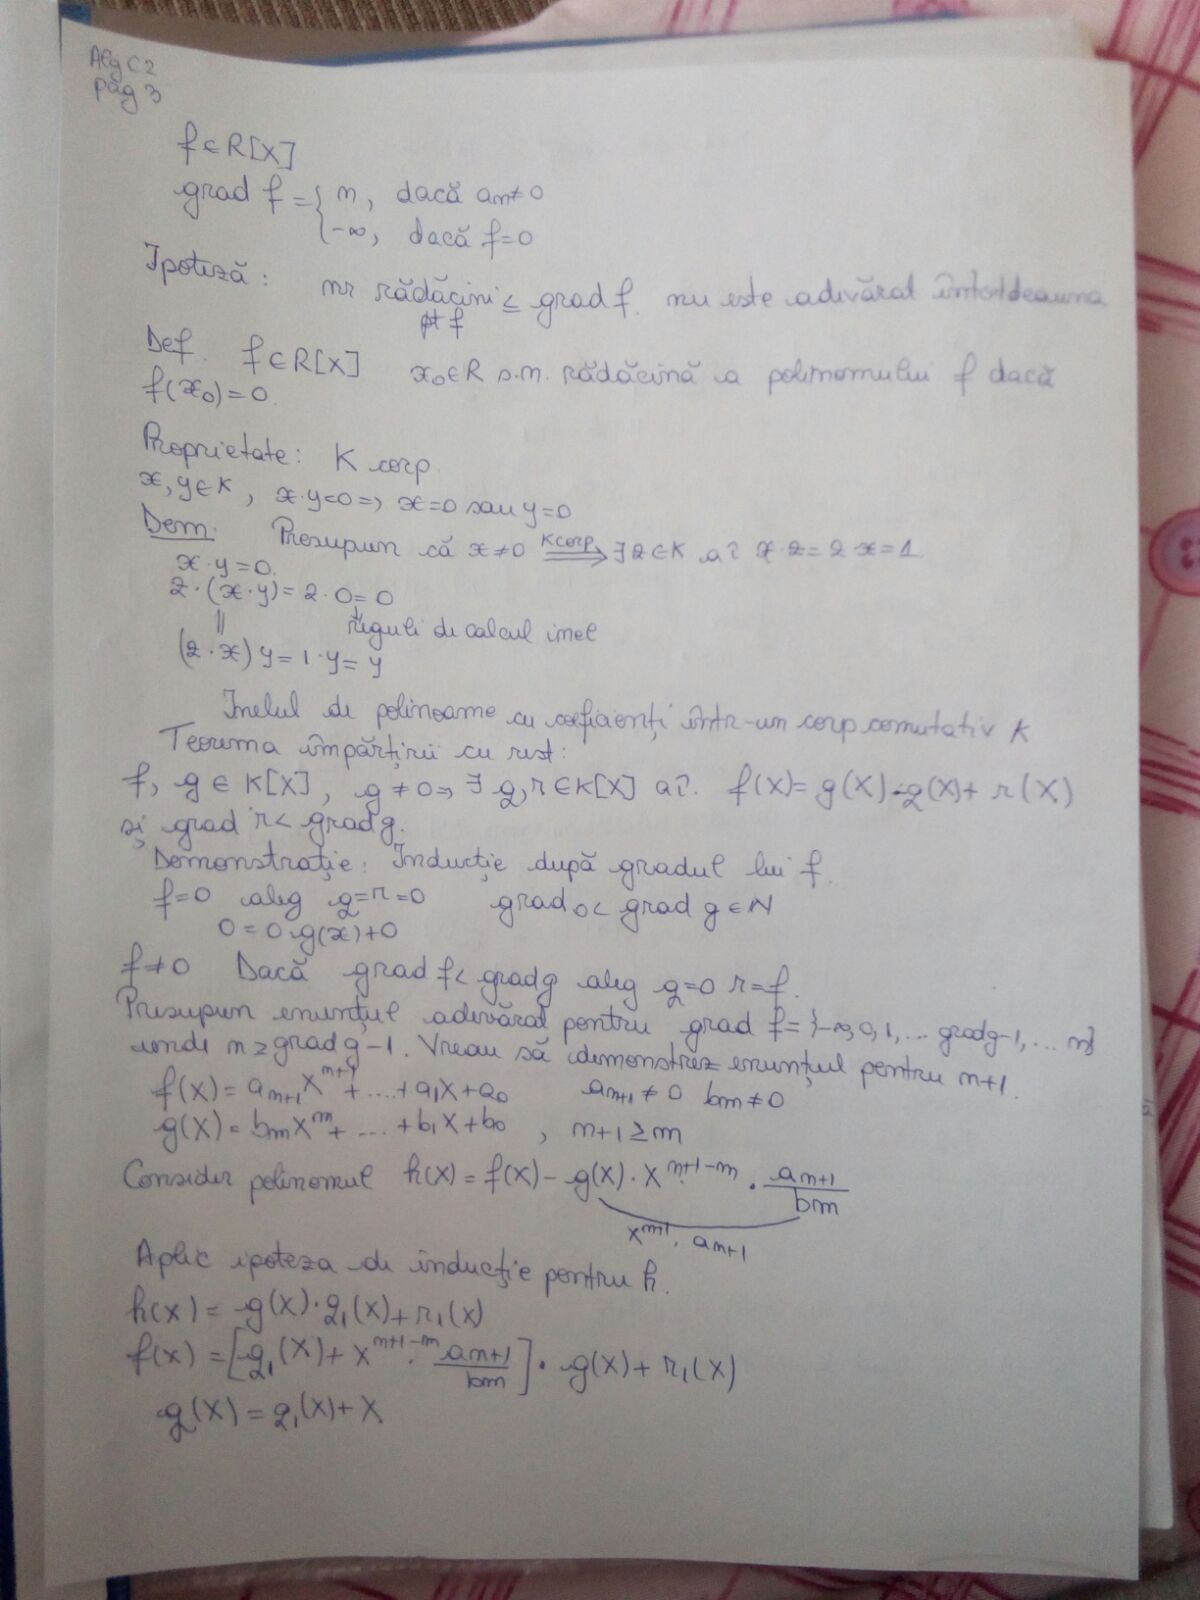 Alg C2
pag 3
f ∈ R[X]
grad f = { n, dacă an≠0
-∞, dacă f=0
Ipoteză: nr rădăcini ≤ grad f. nu este adevărat întotdeauna
pt f
Def. f ∈ R[X] x₀∈R s.m. rădăcină a polinomului f dacă
f(x₀)=0.
Proprietate: K corp.
x, y ∈ K, x·y=0 => x=0 sau y=0
Dem. Presupun că x≠0 =K corp=> ∃ z ∈ K a.î. x·z = z·x = 1.
x·y=0.
z·(x·y) = z·0 = 0
|| ↓ reguli de calcul inel
(z·x) y = 1·y = y
Inelul de polinoame cu coeficienți într-un corp comutativ K
Teorema împărțirii cu rest:
f, g ∈ K[X], g≠0 => ∃ q, r ∈ K[X] a.î. f(X) = g(X)·q(X) + r(X)
și grad r < grad g.
Demonstrație: Inducție după gradul lui f.
f=0 aleg q=r=0 grad 0 < grad g ∈ N
0 = 0·g(x)+0
f≠0 Dacă grad f < grad g aleg q=0 r=f.
Presupun enunțul adevărat pentru grad f = {-∞, 0, 1, ... grad g-1, ... n}
unde n ≥ grad g-1. Vreau să demonstrez enunțul pentru n+1.
f(X) = aₙ₊₁Xⁿ⁺¹ + .... + a₁X + a₀ aₙ₊₁≠0 bm≠0
g(X) = bmXᵐ + ... + b₁X + b₀, n+1 ≥ m
Consider polinomul h(X) = f(X) - g(X)·Xⁿ⁺¹⁻ᵐ · aₙ₊₁/bm
Xⁿ⁺¹ · aₙ₊₁
Aplic ipoteza de inducție pentru h.
h(X) = g(X)·q₁(X) + r₁(X)
f(X) = [q₁(X) + Xⁿ⁺¹⁻ᵐ · aₙ₊₁/bm] · g(X) + r₁(X)
q(X) = q₁(X) + X